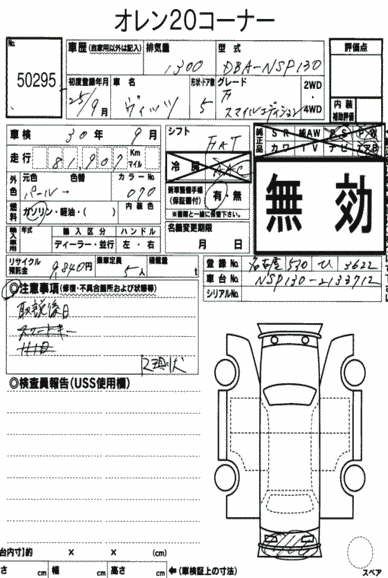 オレン20コーナー
No. 50295
車歴 (自家用以外は記入) 排気量 1300 型式 DBA-NSP130 評価点
初度登録年月 25/9月 車名 ヴィッツ 形状・ドア数 5 グレード F スマイルエディション 2WD 4WD
内装 補助評価
車検 30年9月 シフト FAT 純正品 SR 純AW PS PW カワ TV ナビ エアB
走行 81,907 Km マイル 冷房 AAC
外色 元色 パール 色替 カラーNo 070 新車整備手帳 (保証書付) 有・無 ※書類と一緒に保管下さい。
燃料 ガソリン・軽油・( ) 内装色 名義変更期限 月 日
輸入車用 年式 輸入区分 ハンドル ディーラー・並行 左・右
無効
リサイクル預託金 9840円 乗車定員 5人 積載量 t
登録No. 名古屋 530 ひ 3622
車台No. NSP130-2133712
シリアルNo.
◎注意事項 (修復・不具合箇所および状態等)
取説後日
スマートキー
R現状
◎検査員報告(USS使用欄)
台内寸)約 × × (cm)
さ cm 幅 cm 高さ cm ←(車検証上の寸法)
スペア